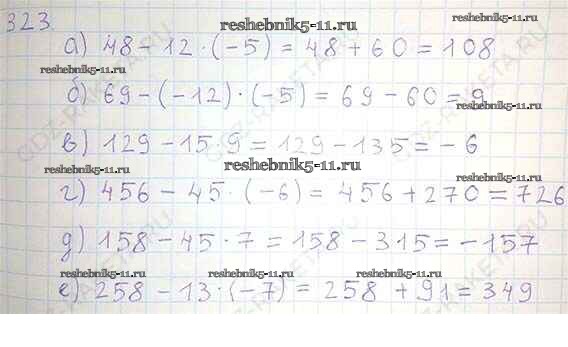 reshebnik5-11.ru
323.
а) 48 - 12 · (-5) = 48 + 60 = 108
reshebnik5-11.ru reshebnik5-11.ru
б) 69 - (-12) · (-5) = 69 - 60 = 9
reshebnik5-11.ru
в) 129 - 15 · 9 = 129 - 135 = - 6
reshebnik5-11.ru reshebnik5-11.ru
г) 456 - 45 · (-6) = 456 + 270 = 726
reshebnik5-11.ru
д) 158 - 45 · 7 = 158 - 315 = - 157
reshebnik5-11.ru reshebnik5-11.ru reshebnik5-11.ru
е) 258 - 13 · (-7) = 258 + 91 = 349
GDZ-RAKETA.RU